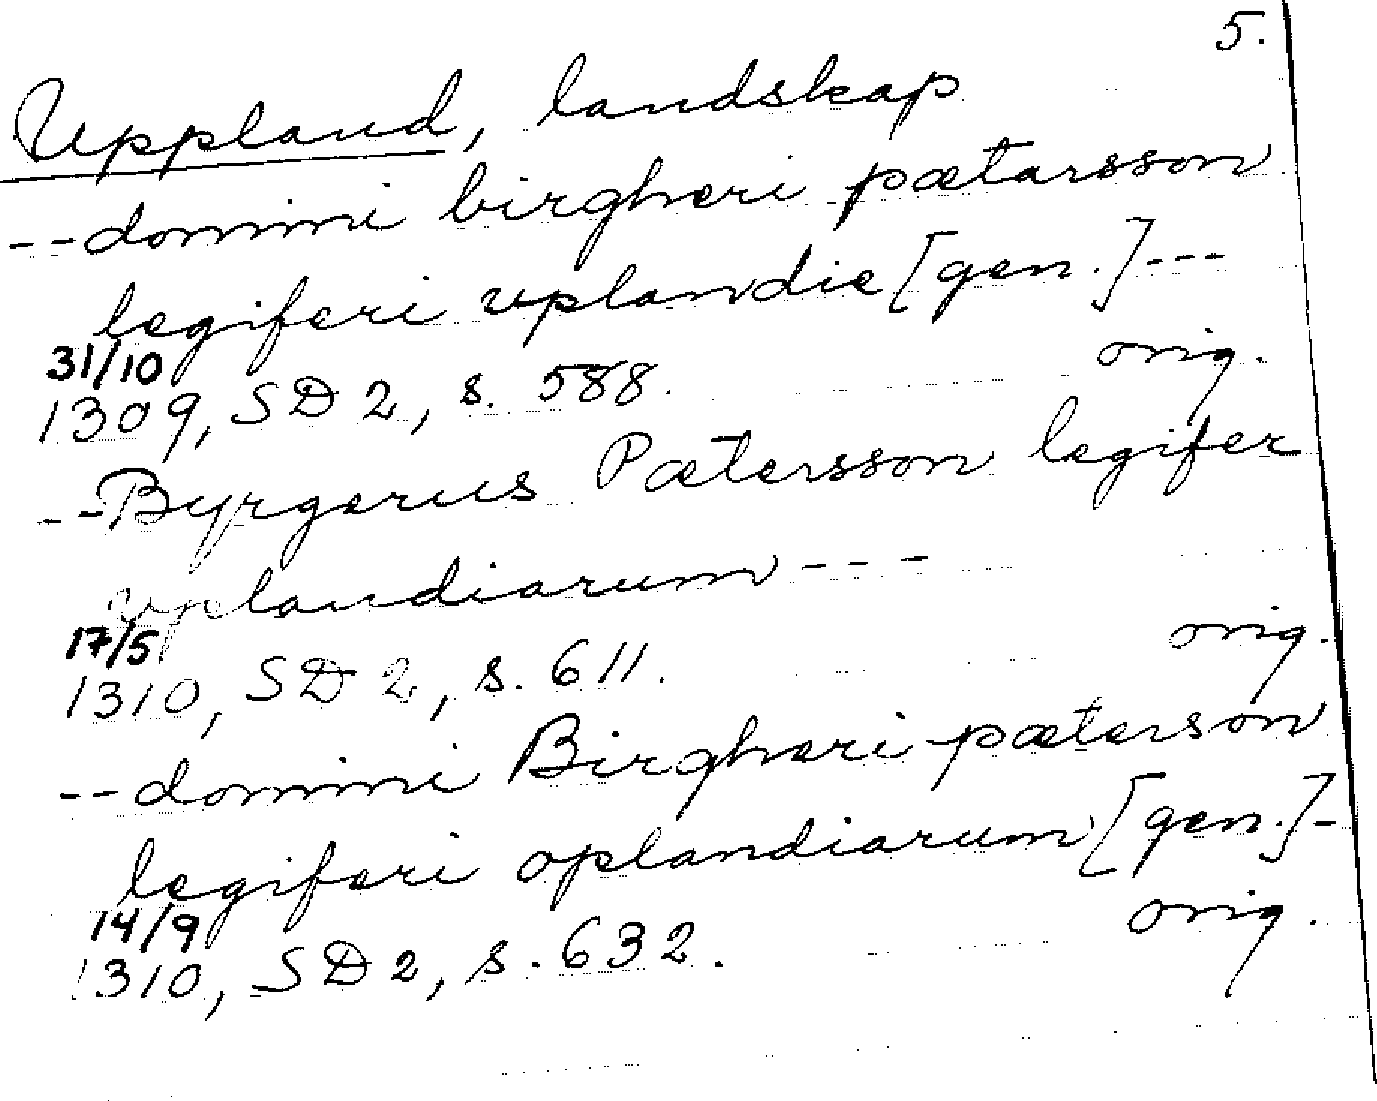 5.
Uppland, landskap
--domini birgheri pætarsson
legiferi vplandie [gen.]---
31/10 orig.
1309, SD 2, s. 588.
--Byrgerus Pætersson legifer
vplandiarum---
17/5 orig.
1310, SD 2, s. 611.
--domini Birgheri pæterson
legiferi oplandiarum [gen.]-
14/9 orig.
1310, SD 2, s. 632.